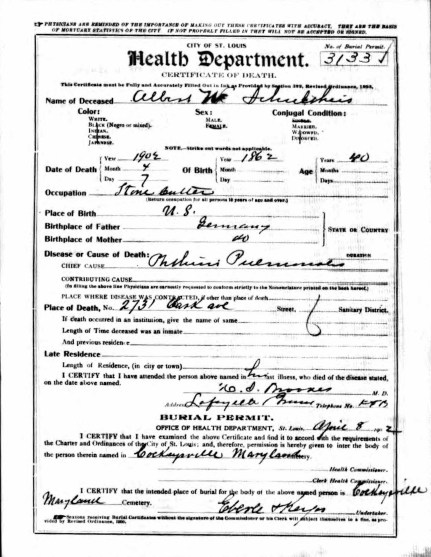 PHYSICIANS ARE REMINDED OF THE IMPORTANCE OF MAKING OUT THESE CERTIFICATES WITH ACCURACY. THEY ARE THE BASIS
OF MORTUARY STATISTICS OF THE CITY. IF NOT PROPERLY FILLED IN THEY WILL NOT BE ACCEPTED OR SIGNED.
CITY OF ST. LOUIS
No. of Burial Permit.
Health Department.
3133
CERTIFICATE OF DEATH.
This Certificate must be Fully and Accurately Filled Out in Ink as Provided by Section Revised Ordinances,
Name of Deceased Albert W
Color: Sex: Conjugal Condition:
WHITE. MALE.
BLACK (Negro or mixed). FEMALE. MARRIED.
INDIAN. WIDOWED.
CHINESE. DIVORCED.
JAPANESE.
NOTE.—Strike out words not applicable.
Year 1902 Year 1862 Years 40
Date of Death Month 4 Of Birth Month Age Months
Day 7 Day Days
Occupation Stone Cutter
(Return occupation for all persons 10 years of age and over.)
Place of Birth U. S.
Birthplace of Father Germany STATE OR COUNTRY
Birthplace of Mother do
Disease or Cause of Death: DURATION
CHIEF CAUSE Phthisis Pulmonalis
CONTRIBUTING CAUSE
(In filling the above line Physicians are requested to conform strictly to the Nomenclature printed on the back hereof.)
PLACE WHERE DISEASE WAS CONTRACTED, if other than place of death
Place of Death, No. 2731 ave Street, 6 Sanitary District.
If death occurred in an institution, give the name of same
Length of Time deceased was an inmate
And previous residence
Late Residence
Length of Residence, (in city or town)
I CERTIFY that I have attended the person above named in last illness, who died of the disease stated,
on the date above named.
M. D.
Address Lafayette Telephone No.
BURIAL PERMIT.
OFFICE OF HEALTH DEPARTMENT, St. Louis, April 8 1902
I CERTIFY that I have examined the above Certificate and find it to accord with the requirements of
the Charter and Ordinances of the City of St. Louis; and, therefore, permission is hereby given to inter the body of
the person therein named in Cockeysville Maryland
Health Commissioner.
Clerk Health Commissioner.
I CERTIFY that the intended place of burial for the body of the above named person is Cockeysville
Maryland Cemetery.
Eberle & Keyes Undertaker.
Persons receiving Burial Certificates without the signature of the Commissioner or his Clerk will subject themselves to a fine, as pro-
vided by Revised Ordinances,